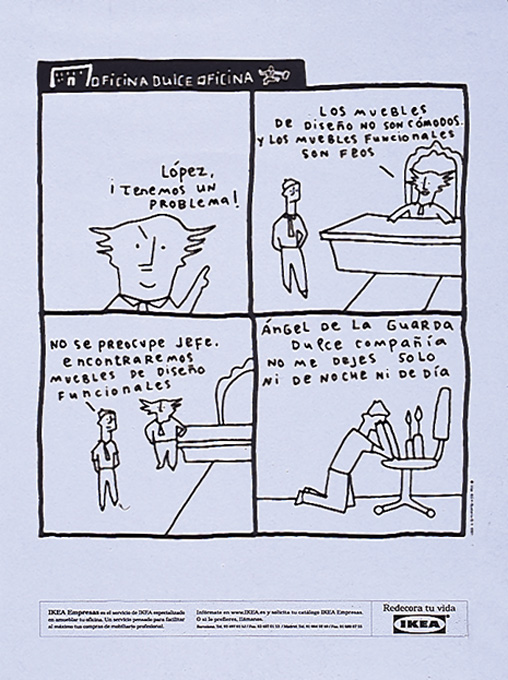 OFICINA DULCE OFICINA
LÓPEZ,
¡TENEMOS UN
PROBLEMA!
LOS MUEBLES
DE DISEÑO NO SON CÓMODOS.
Y LOS MUEBLES FUNCIONALES
SON FEOS
NO SE PREOCUPE JEFE.
ENCONTRAREMOS
MUEBLES DE DISEÑO
FUNCIONALES
ÁNGEL DE LA GUARDA
DULCE COMPAÑÍA
NO ME DEJES SOLO
NI DE NOCHE NI DE DÍA
IKEA Empresas es el servicio de IKEA especializado
en amueblar tu oficina. Un servicio pensado para facilitar
al máximo tus compras de mobiliario profesional.
Infórmate en www.IKEA.es y solicita tu catálogo IKEA Empresas.
O si lo prefieres, llámanos.
Redecora tu vida
IKEA